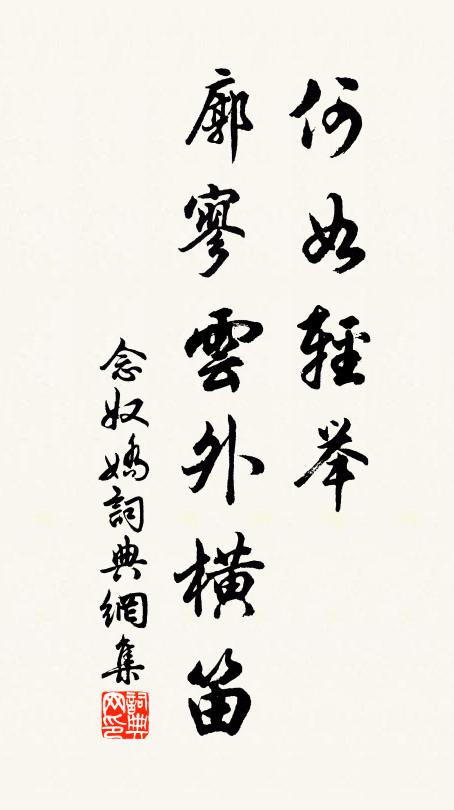 何如輕举
廓寥雲外橫笛
念奴嬌詞典網集
詞典网印